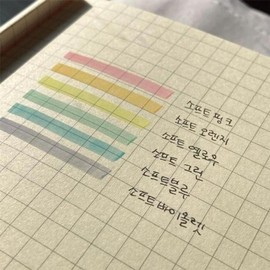 소프트 핑크
소프트 오렌지
소프트 옐로우
소프트 그린
소프트블루
소프트바이올렛